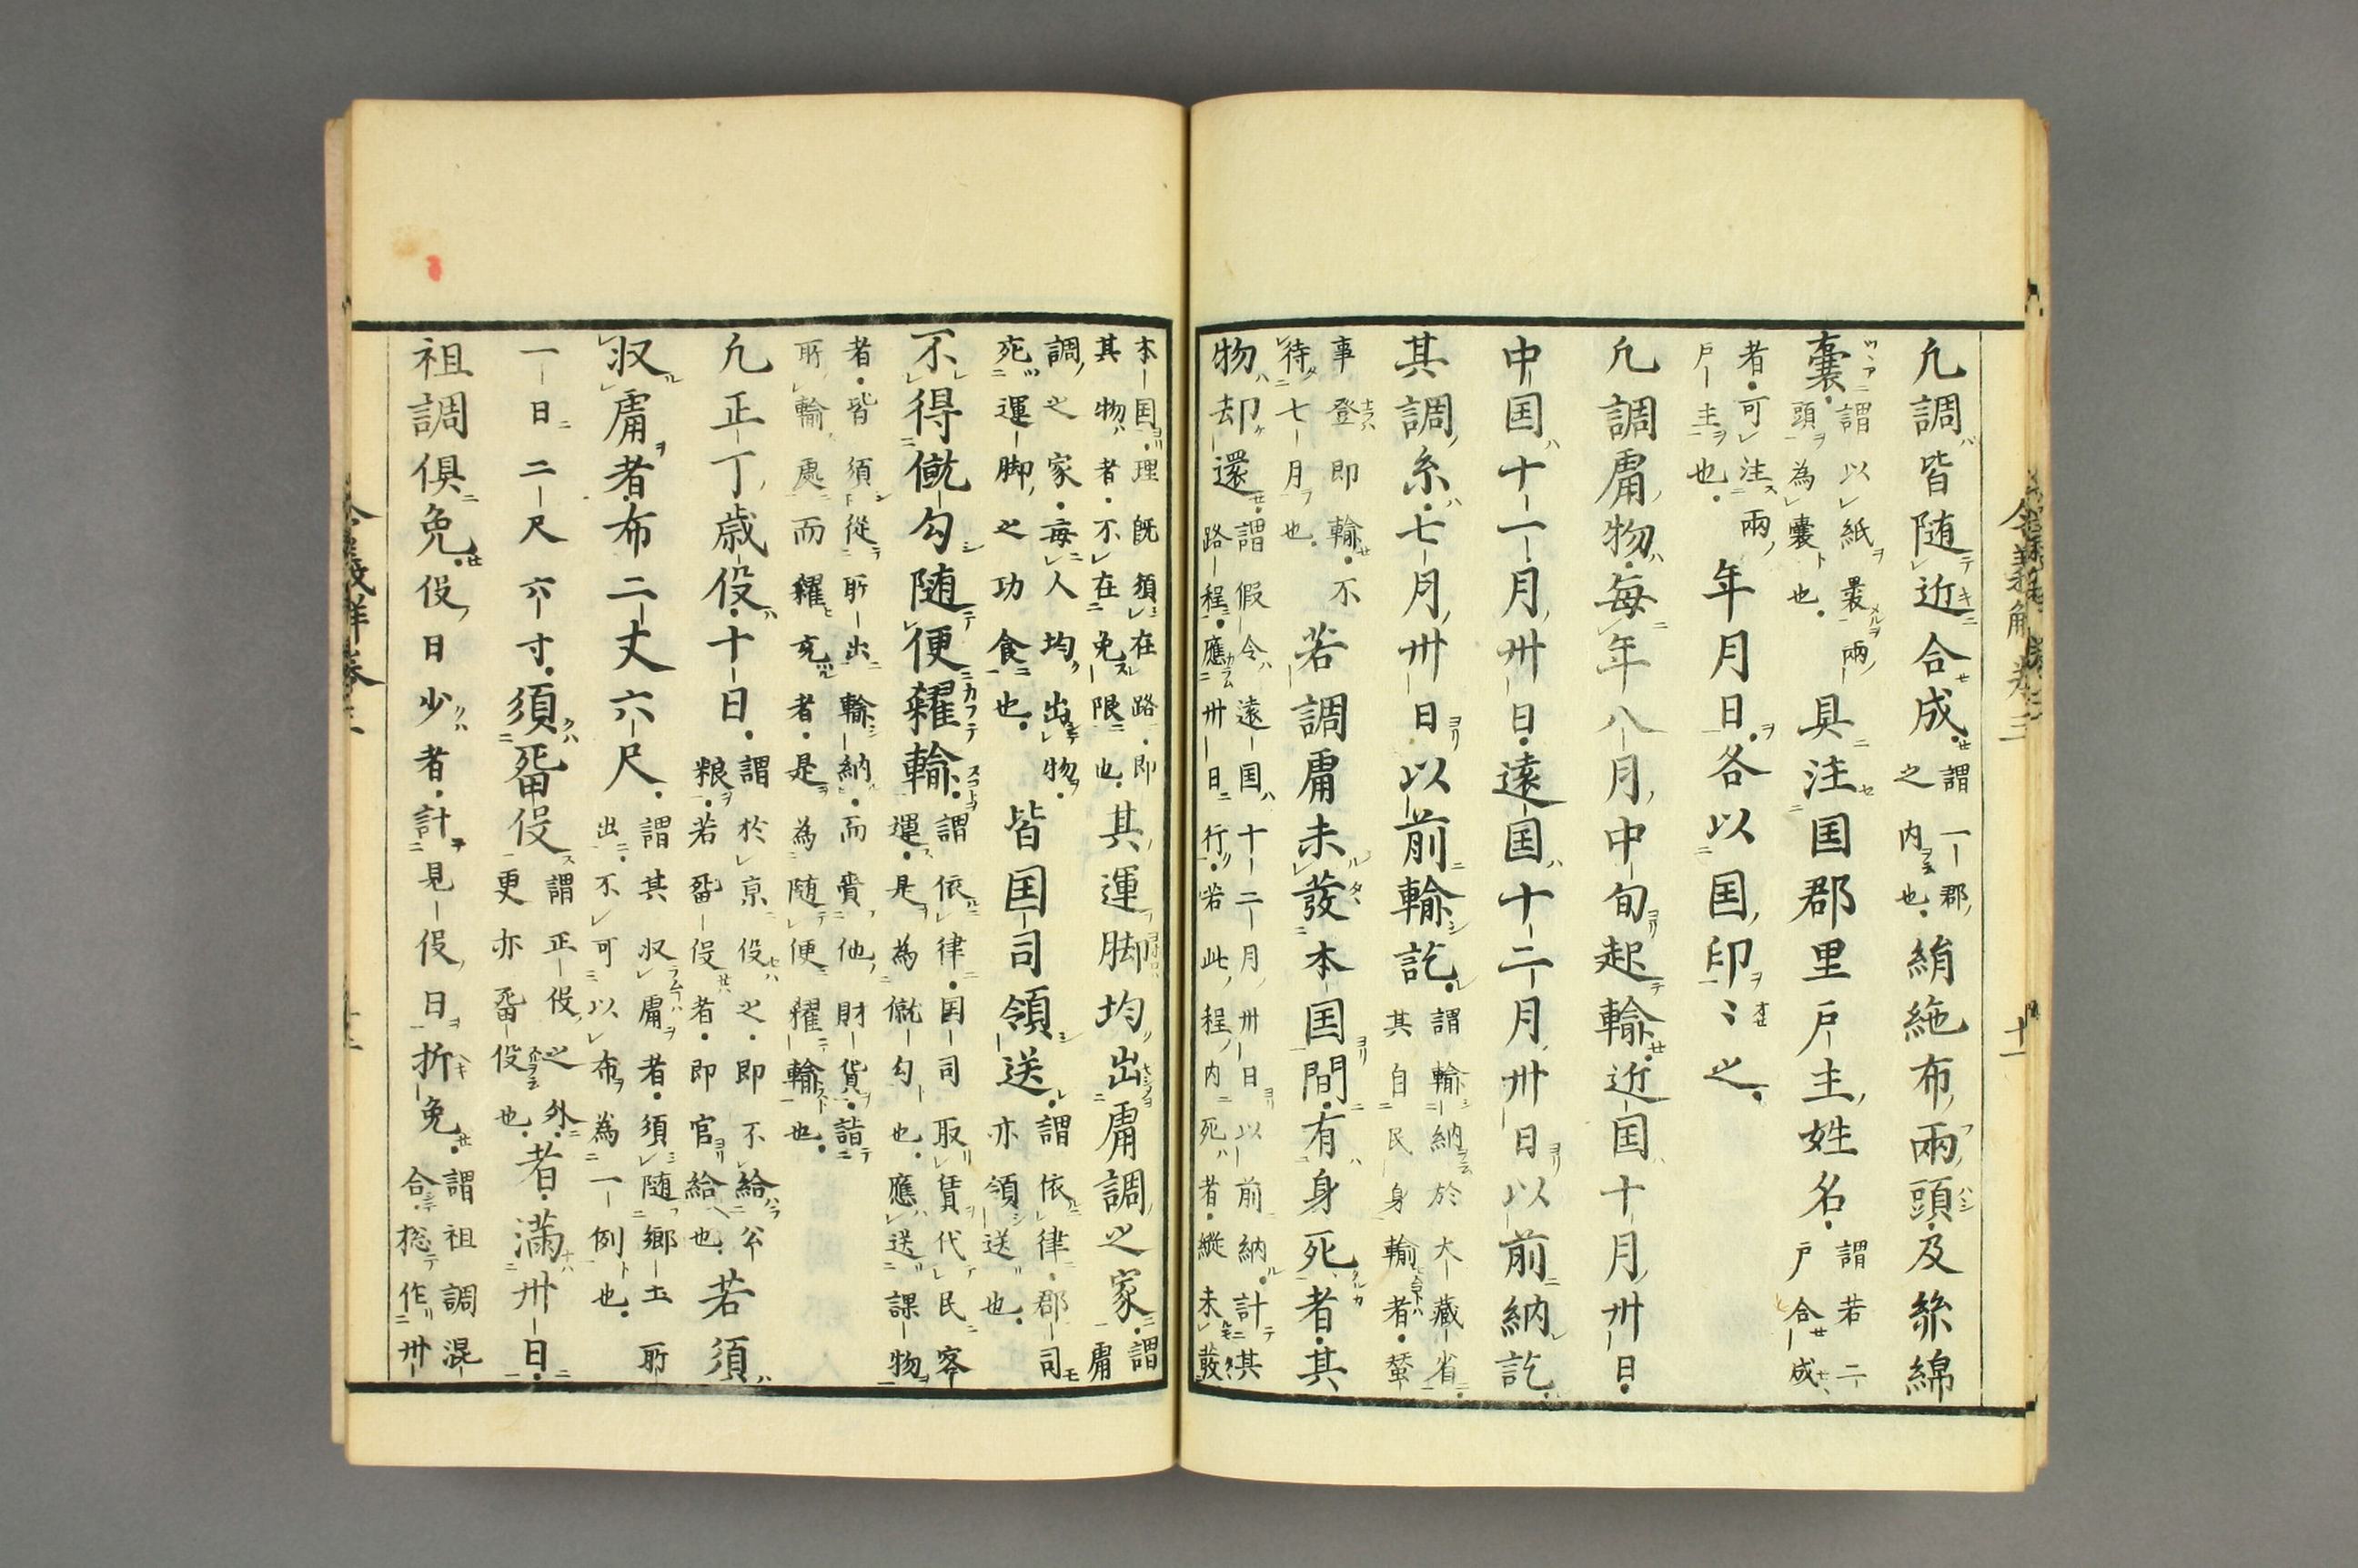 凡調皆随近合成。謂一郡之内也。絹絁布兩頭及絲綿
嚢。謂以紙裹兩頭為嚢也。具注国郡里戸主姓名。謂若二戸合成
者。可注兩戸主也。年月日。各以国印〻之。
凡調庸物。毎年八月中旬起輸。近国十月卅日。
中国十一月卅日。遠国十二月卅日以前納訖。
其調糸。七月卅日以前輸訖。謂輸納於大藏省。其自民身輸者。蠶
事登即輸。不待七月也。若調庸未發本国間。有身死者。其
物却還。謂假令遠国十二月卅日以前納。計其路程。應卅日行。若此程内死者。縦未發
本国。理既須在路。即其物者。不在免限也。其運脚均出庸調之家。謂庸
調之家。毎人均出物。死運脚之功食也。皆国司領送。謂依律。郡司亦領送也。
不得僦勾随便糴輸。謂依律。国司取賃代民運。是為僦勾也。應送課物
者。皆須從所出輸納。而賷他財貨。詣所輸處而糴充者。是為随便糴輸也。
凡正丁歳役。十日。謂於京役之。即不給公粮。若㽞役者。即官給也。若須
収庸者。布二丈六尺。謂其収庸者。須随郷土所出。不可以布為一例也。
一日二尺六寸。須㽞役謂正役之外。更亦㽞役也。者。満卅日。
租調倶免。役日少者。計見役日折免。謂租調混合。惣作卅
令義解 卷三 十一